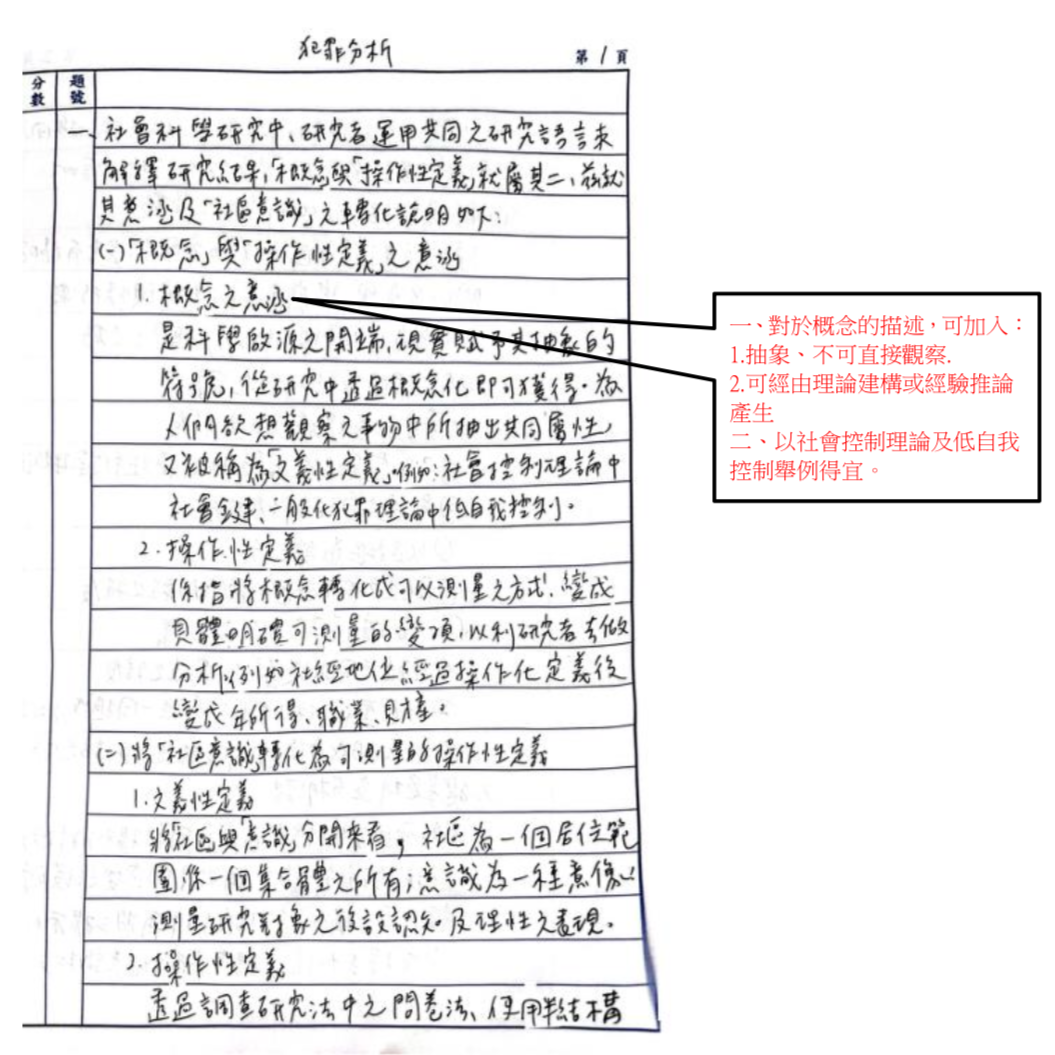 犯罪分析
第 1 頁
分數
題號
一、社會科學研究中、研究者運用共同之研究語言來
解釋研究結果,「概念」與「操作性定義」就屬其二、茲就
其意涵及「社區意識」之轉化說明如下:
(一)「概念」與「操作性定義」之意涵
1. 概念之意涵
是科學啟源之開端,現實賦予其抽象的
符號,從研究中透過概念化即可獲得。為
人們欲想觀察之事物中所抽出共同屬性,
又被稱為「文義性定義」,例如:社會控制理論中
社會鍵、一般化犯罪理論中低自我控制。
2. 操作性定義
係指將概念轉化成可以測量之方式、變成
具體明確可測量的變項,以利研究者去做
分析,例如社經地位經過操作化定義後
變成年所得、職業、財產。
(二)將「社區意識」轉化為可測量的操作性定義
1.文義性定義
將「社區」與「意識」分開來看,社區為一個居住範
圍,係一個集合體之所有;意識為一種意像以
測量研究對象之後設認知及理性之表現。
2. 操作性定義
透過調查研究法中之問卷法、使用半結構
一、對於概念的描述,可加入:
1.抽象、不可直接觀察.
2.可經由理論建構或經驗推論
產生
二、以社會控制理論及低自我
控制舉例得宜。